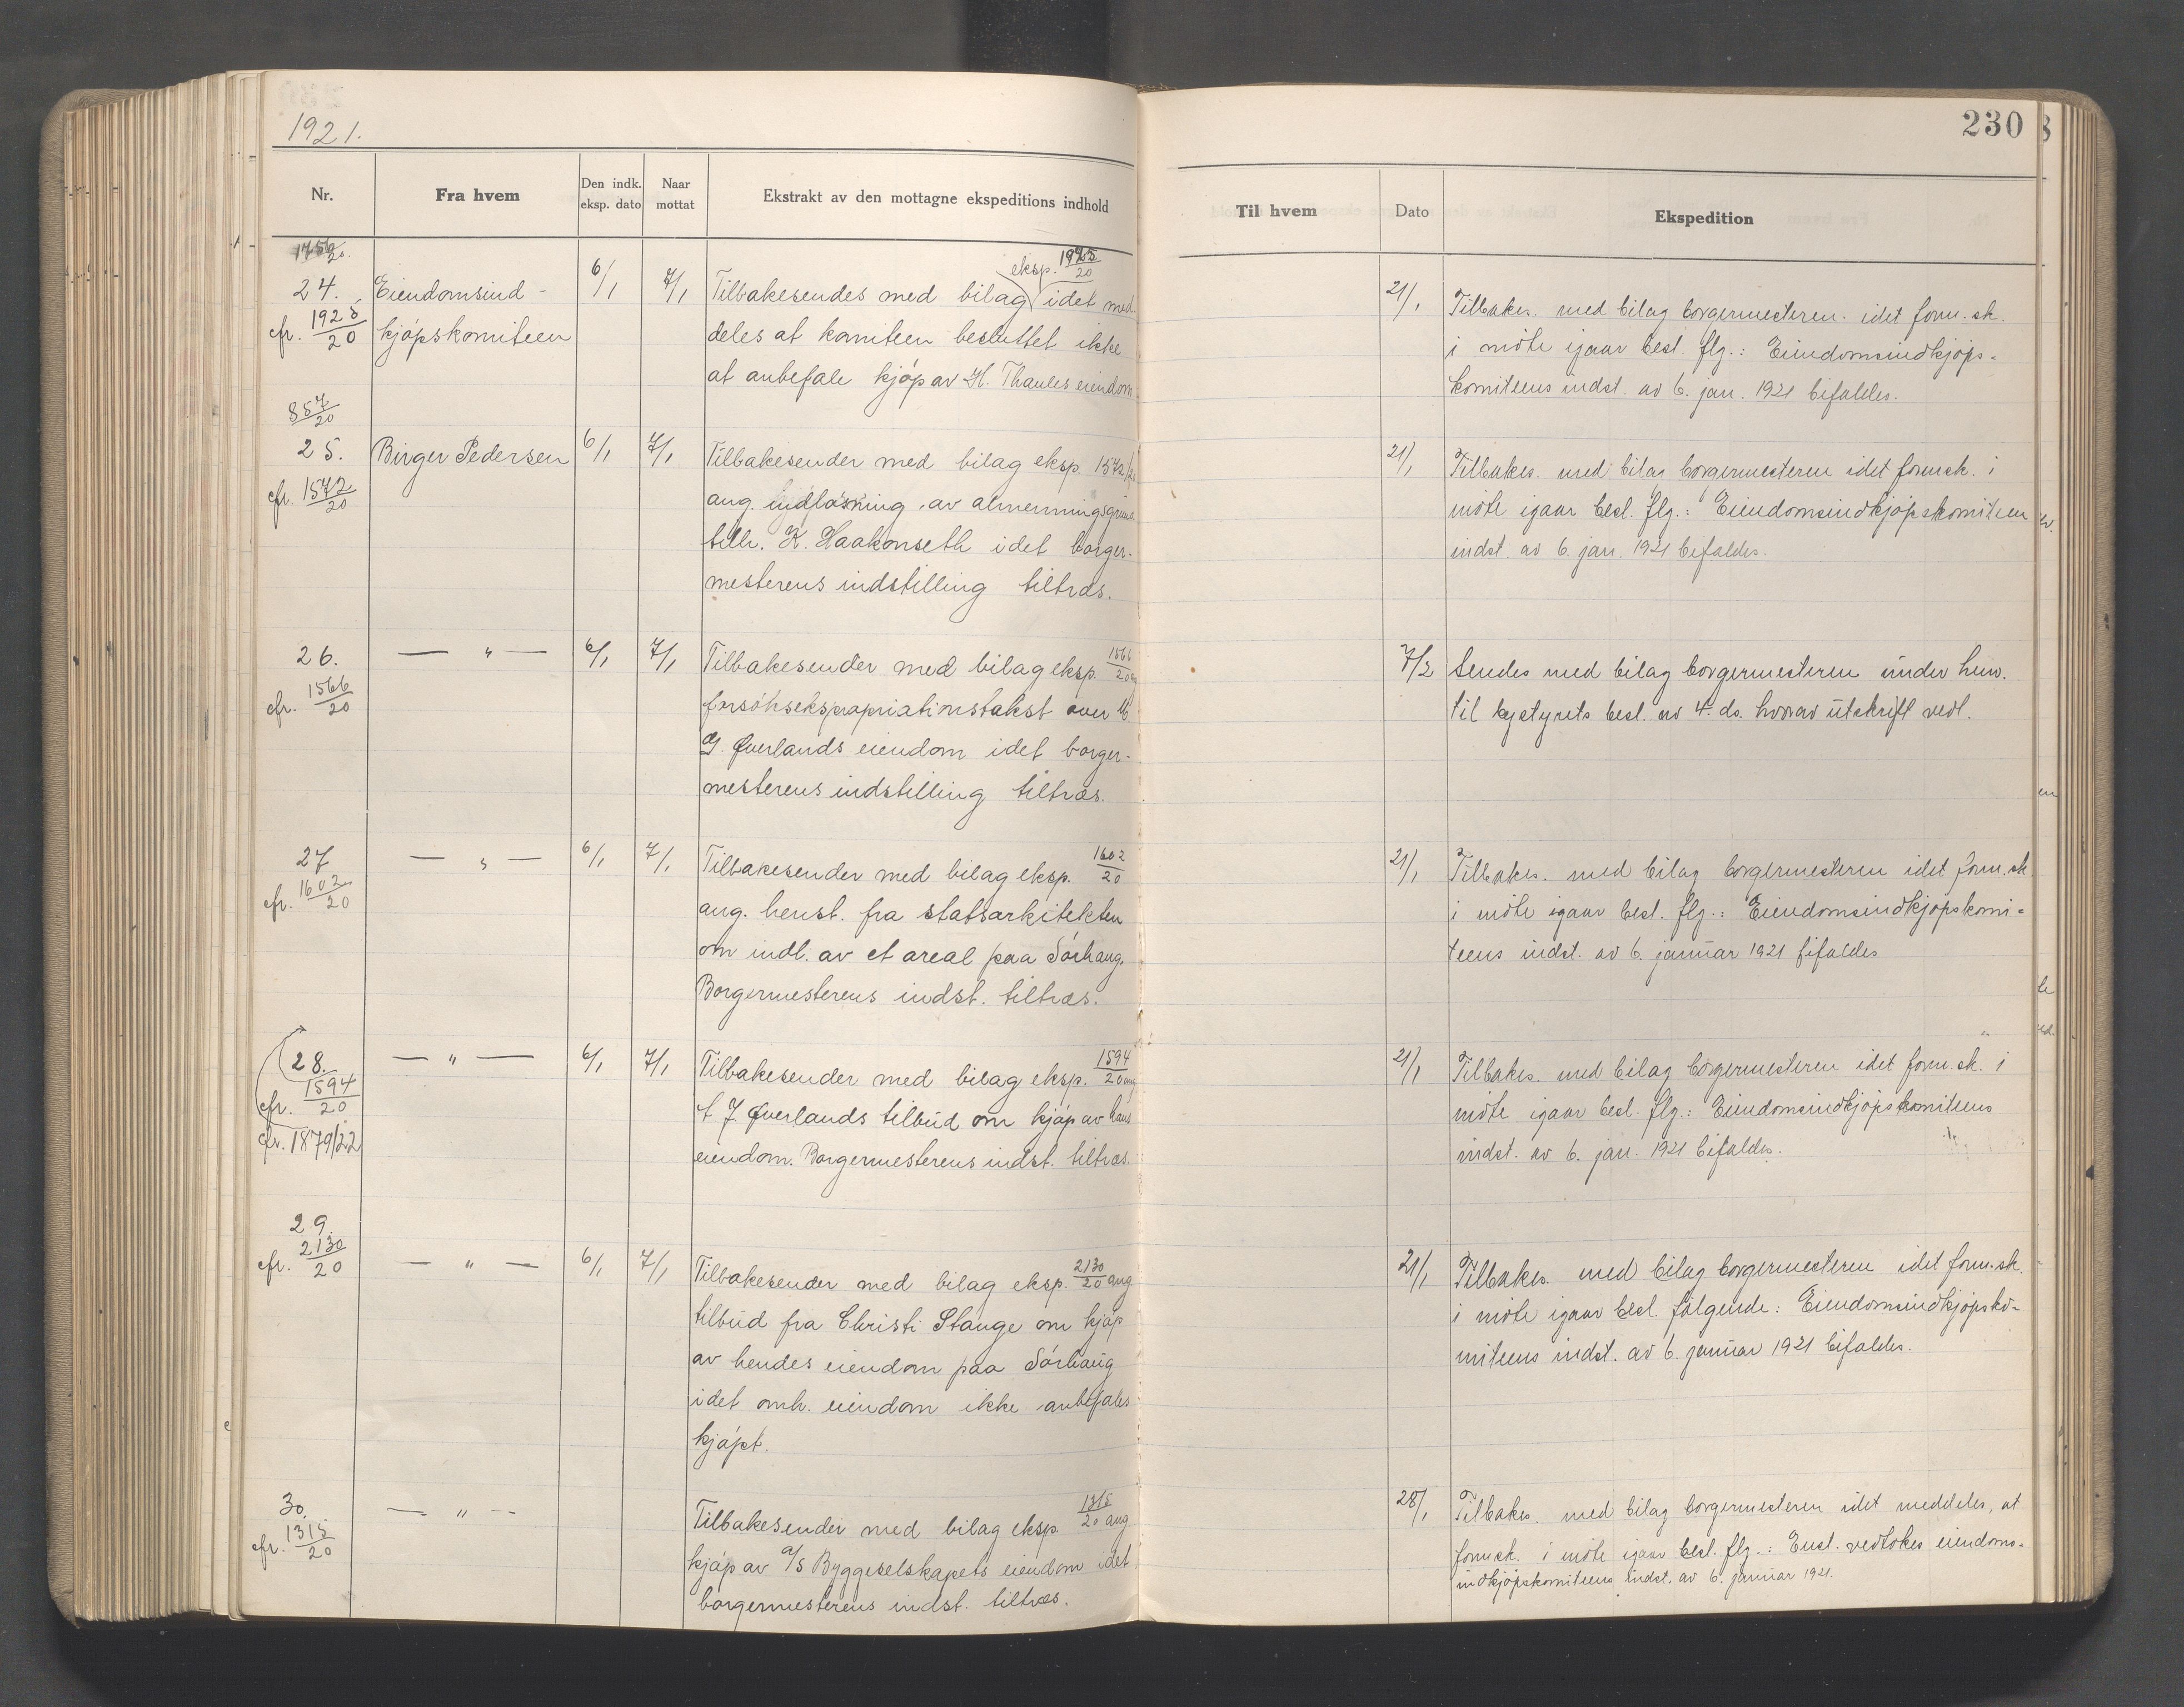 1921.
230
Nr.
Fra hvem
Den indk. eksp. dato
Naar mottat
Ekstrakt av den mottagne ekspeditions indhold
Til hvem
Dato
Ekspedition
24.
cfr. 1925/20
Eiendomsind-
kjøpskomiteen
6/1
7/1
eksp. 1925/20
Tilbakesendes med bilag idet med-
deles at komiteen besluttet ikke
at anbefale kjøp av H. Thaules eiendom.
21/1
Tilbakes. med bilag borgermesteren idet form.sk.
i møte igaar besl. flg.: Eiendomsindkjøps-
komiteens indst. av 6. jan. 1921 bifaldes.
857/20
25.
cfr. 1572/20
Birger Pedersen
6/1
7/1
Tilbakesender med bilag eksp. 1572/20
ang. indløsning av almenningsgrund
tilh. K. Haakonseth idet borger-
mesterens indstilling tiltræs.
21/1
Tilbakes. med bilag borgermesteren idet formsk. i
møte igaar besl. flg.: Eiendomsindkjøpskomiteen
indst. av 6. jan. 1921 bifaldes.
26.
cfr. 1566/20
— " —
6/1
7/1
Tilbakesender med bilag eksp. 1566/20 ang
forsøksekspropriationstakst over
G. Øverlands eiendom idet borger-
mesterens indstilling tiltræs.
7/2
Sendes med bilag borgermesteren under henv.
til bystyrets besl. av 4. ds. hvorav utskrift vedl.
27
cfr. 1602/20
— " —
6/1
7/1
Tilbakesender med bilag eksp. 1602/20
ang. henst. fra statsarkitekten
om indl. av et areal paa Sørhaug.
Borgermesterens indst. tiltræs.
21/1
Tilbakes. med bilag borgermesteren idet form.sk.
i møte igaar besl. flg.: Eiendomsindkjøpskomi-
teens indst. av 6. januar 1921 bifaldes
28.
cfr. 1594/20
cfr. 1879/22
— " —
6/1
7/1
Tilbakesender med bilag eksp. 1594/20 ang
J. Øverlands tilbud om kjøp av hans
eiendom. Borgermesterens indst. tiltræs.
21/1
Tilbakes. med bilag borgermesteren idet form.sk. i
møte igaar besl. flg.: Eiendomsindkjøpskomiteens
indst. av 6. jan. 1921 bifaldes.
29.
cfr. 2130/20
— " —
6/1
7/1
Tilbakesender med bilag eksp. 2130/20 ang
tilbud fra Christi Stange om kjøp
av hendes eiendom paa Sørhaug
idet omh. eiendom ikke anbefales
kjøpt.
21/1
Tilbakes. med bilag borgermesteren idet form.sk.
i møte igaar besl. følgende: Eiendomsindkjøpsko-
miteens indst. av 6. januar 1921 bifaldes.
30.
cfr. 1315/20
— " —
Tilbakesender med bilag eksp. 1315/20 ang
kjøp av A/S Byggeselskapets eiendom idet
borgermesterens indst. tiltræs.
28/1
Tilbakes. med bilag borgermesteren idet meddeles, at
formsk. i møte igaar besl. flg.: Enst. vedtokes eiendoms-
indkjøpskomiteens indst. av 6. januar 1921.